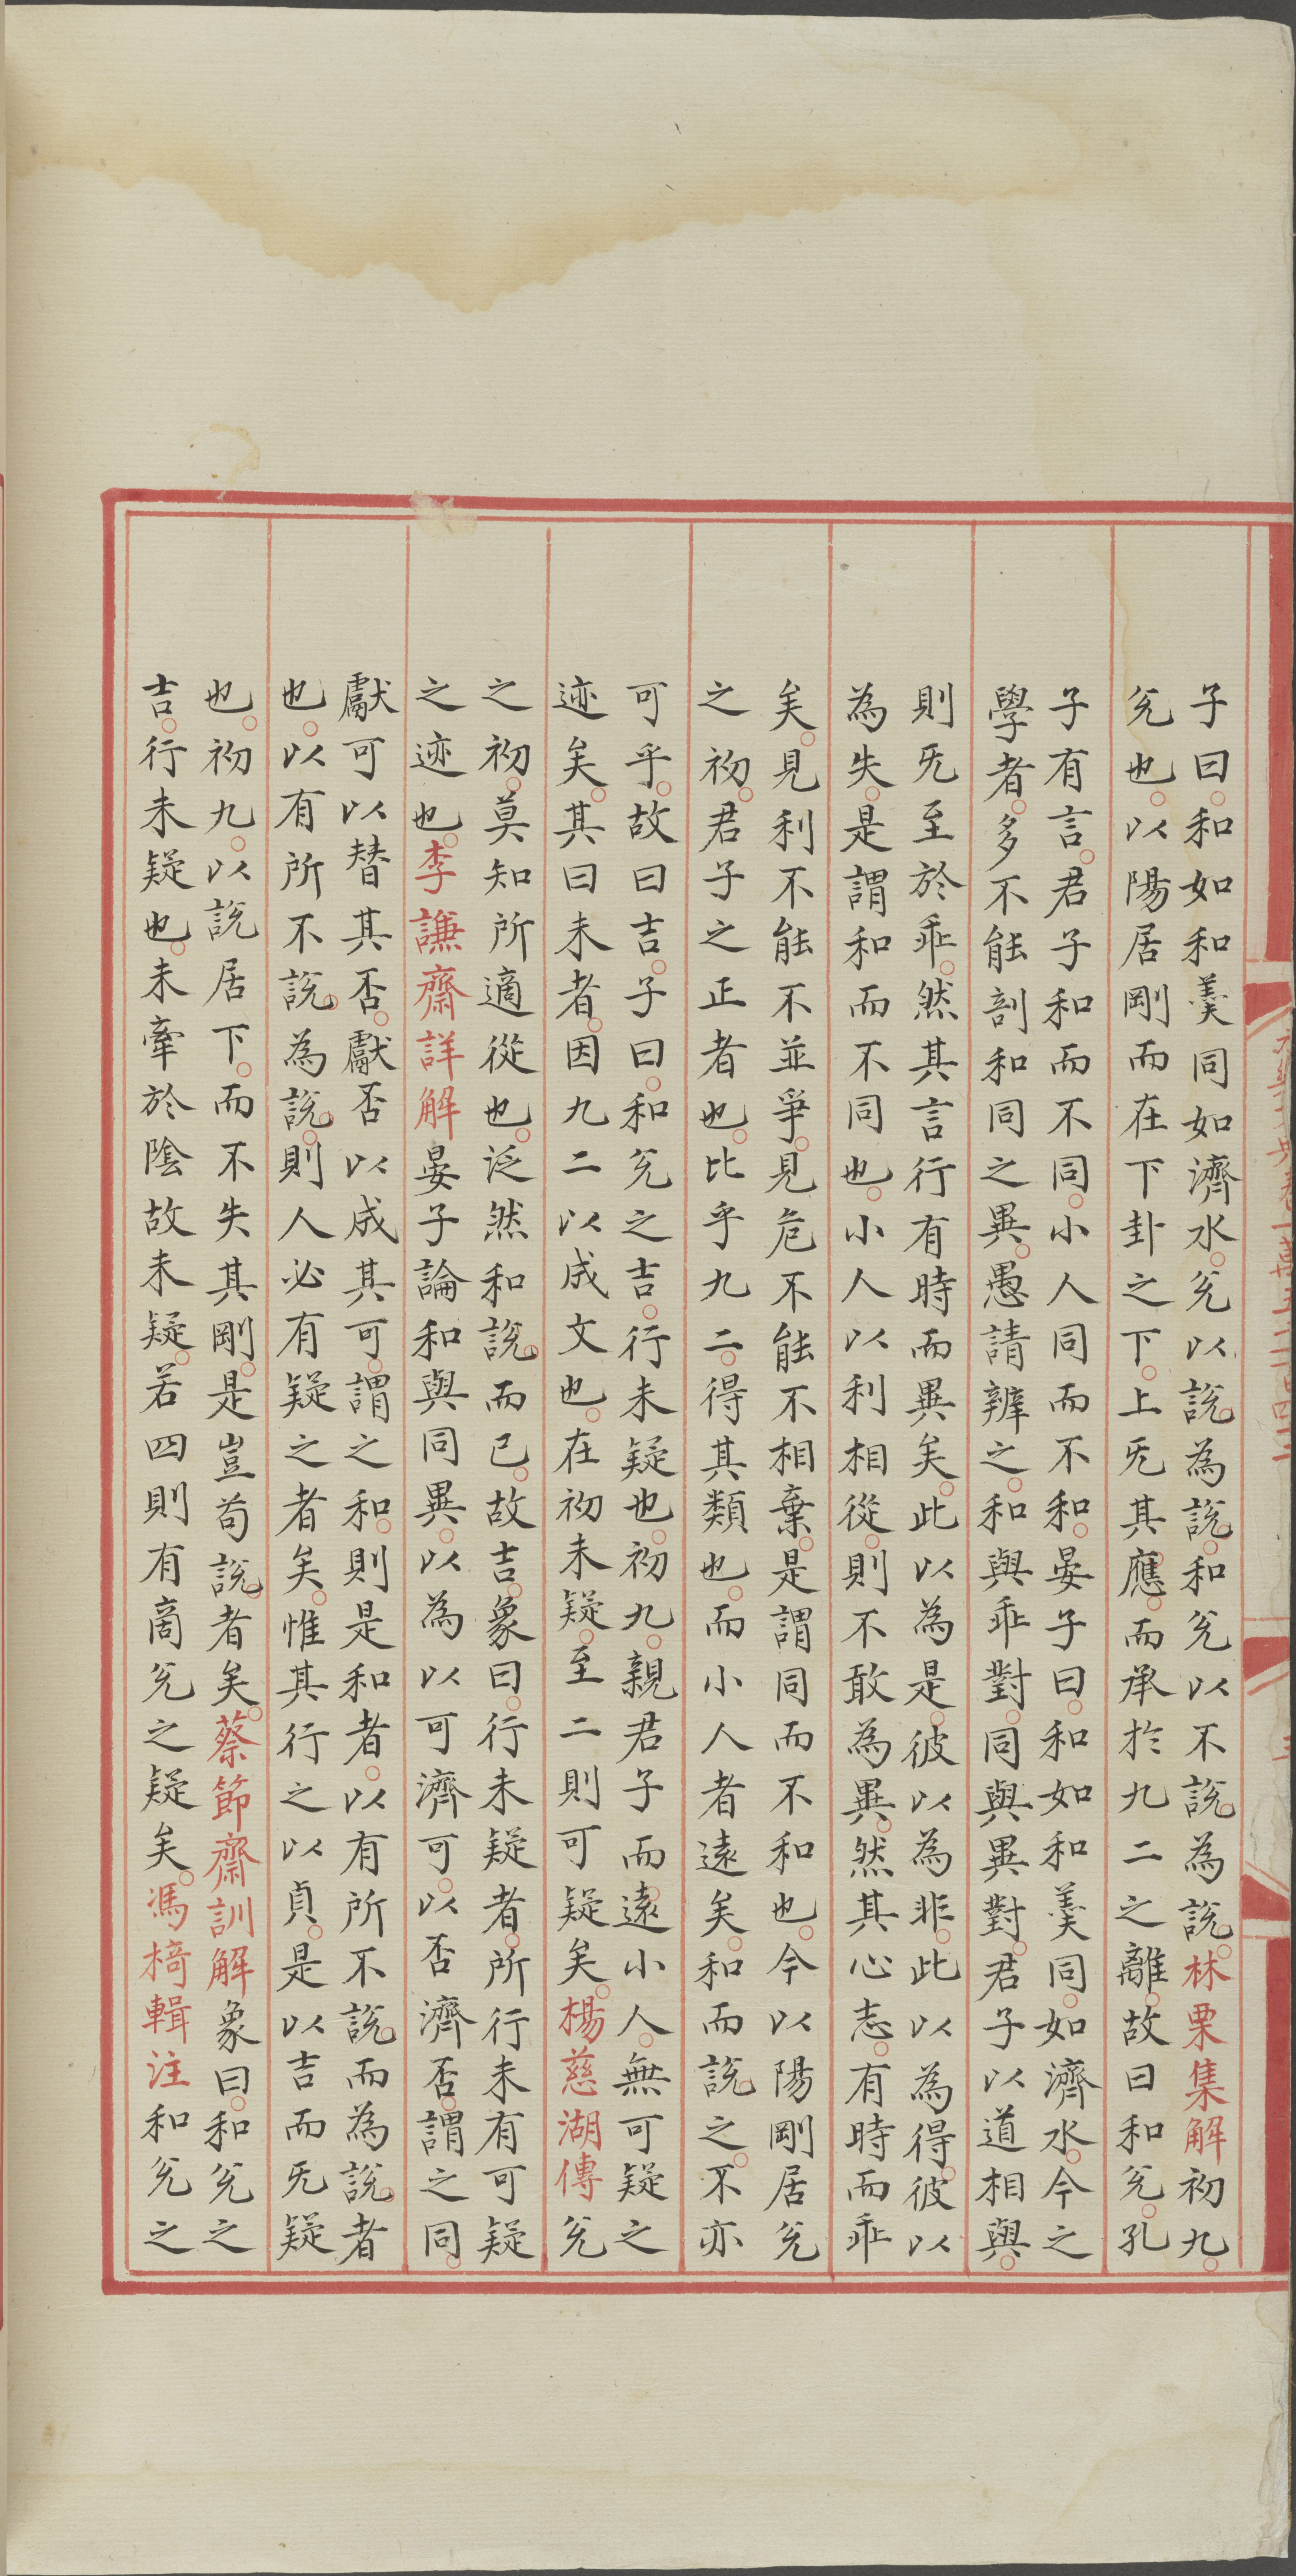 子曰和如和羹同如濟水兊以說為說和兊以不說為說林栗集解初九
兊也以陽居剛而在下卦之下上旡其應而承扵九二之離故曰和兊孔
子有言君子和而不同小人同而不和晏子曰和如和羹同如濟水今之
學者多不能剖和同之異愚請辨之和與乖對同與異對君子以道相與
則旡至於乖然其言行有時而異矣此以為是彼以為非此以為得彼以
為失是謂和而不同也小人以利相從則不敢為異然其心志有時而乖
矣見利不能不並爭見危不能不相棄是謂同而不和也今以陽剛居兊
之初君子之正者也比乎九二得其類也而小人者遠矣和而說之不亦
可乎故曰吉子曰和兊之吉行未疑也初九親君子而遠小人無可疑之
迹矣其曰未者因九二以成文也在初未疑至二則可疑矣楊慈湖傳兊
之初莫知所適從也泛然和說而已故吉象曰行未疑者所行未有可疑
之迹也李謙齋詳解晏子論和與同異以為以可濟可以否濟否謂之同
獻可以替其否獻否以成其可謂之和則是和者以有所不說而為說者
也以有所不說為說則人必有疑之者矣惟其行之以貞是以吉而旡疑
也初九以說居下而不失其剛是豈苟說者矣蔡節齋訓解象曰和兊之
吉行未疑也未牽於陰故未疑若四則有商兊之疑矣馮椅輯注和兊之